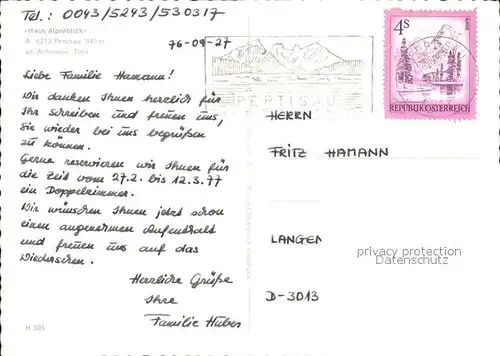 Tel.: 0043/5243/530317
»Haus Alpenblick«
A 6213 Pertisau 940 m
am Achensee, Tirol
76-09-27
Liebe Familie Hamann!
Wir danken Ihnen herzlich für
Ihr Schreiben und freuen uns,
Sie wieder bei uns begrüßen
zu können.
Gerne reservieren wir Ihnen für
die Zeit vom 27.2. bis 12.3.77
ein Doppelzimmer.
Wir wünschen Ihnen jetzt schon
einen angenehmen Aufenthalt
und freuen uns auf das
Wiedersehen.
Herzliche Grüße
Ihre
Familie Huber
H 505
PERTISAU
4S
REPUBLIK ÖSTERREICH
HERRN
FRITZ HAMANN
LANGEN
D-3013
privacy protection
www.ansichtskarten-center.de